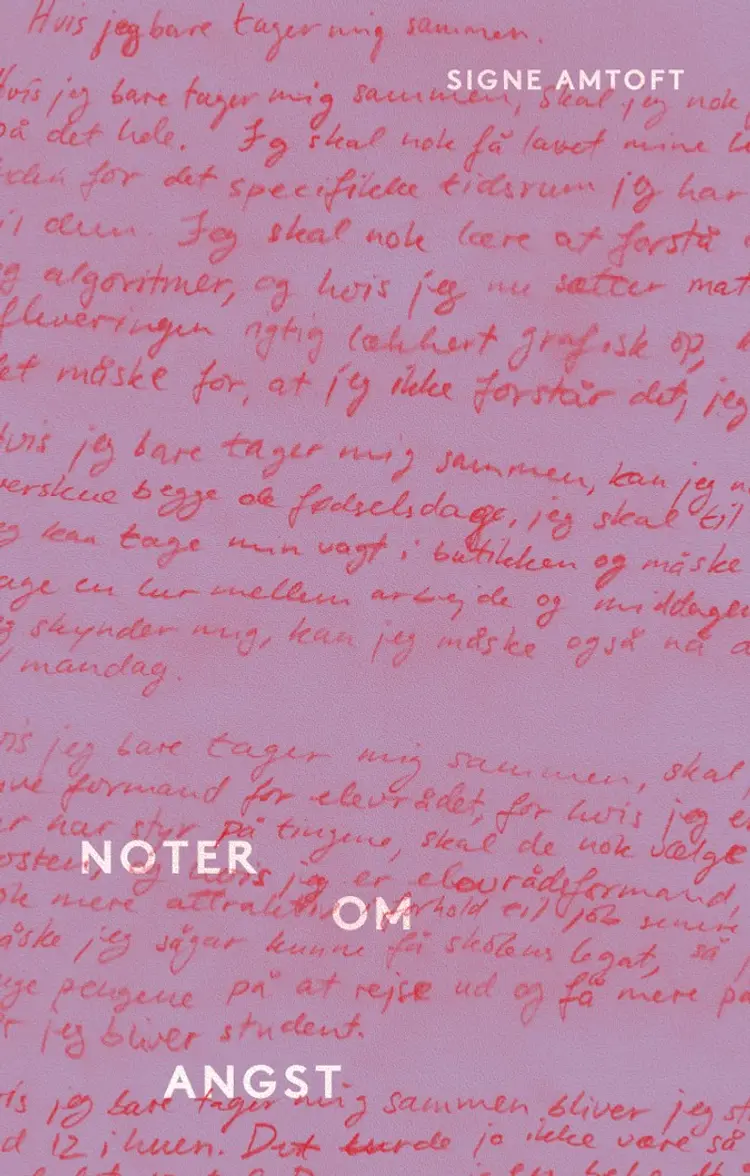 Hvis jeg bare tager mig sammen.
SIGNE AMTOFT
Hvis jeg bare tager mig sammen, skal jeg nok
på det hele. Jeg skal nok få lavet mine
inden for det specifikke tidsrum jeg har
til dem. Jeg skal nok lære at forstå
og algoritmer, og hvis jeg nu sætter mat
fleveringen rigtig lækkert grafisk op,
det måske for, at jeg ikke forstår det, jeg
Hvis jeg bare tager mig sammen, kan jeg
verskue begge de fødselsdage, jeg skal til
eg kan tage min vagt i butikken og måske
age en lur mellem arbejde og middagen
g skynder mig, kan jeg måske også nå
mandag.
vis jeg bare tager mig sammen, skal
ve formand for elevrådet, for hvis jeg
er har styr på tingene, skal de nok vælge
NOTER
osten, og hvis jeg er elevrådsformand,
ok mere attraktiv i forhold til job senere
OM
åske jeg sågar kunne få skolens legat, så
ge pengene på at rejse ud og få mere på
r jeg bliver student.
ANGST
is jeg bare tager mig sammen bliver jeg st
d 12 i huen. Det burde jo ikke være så